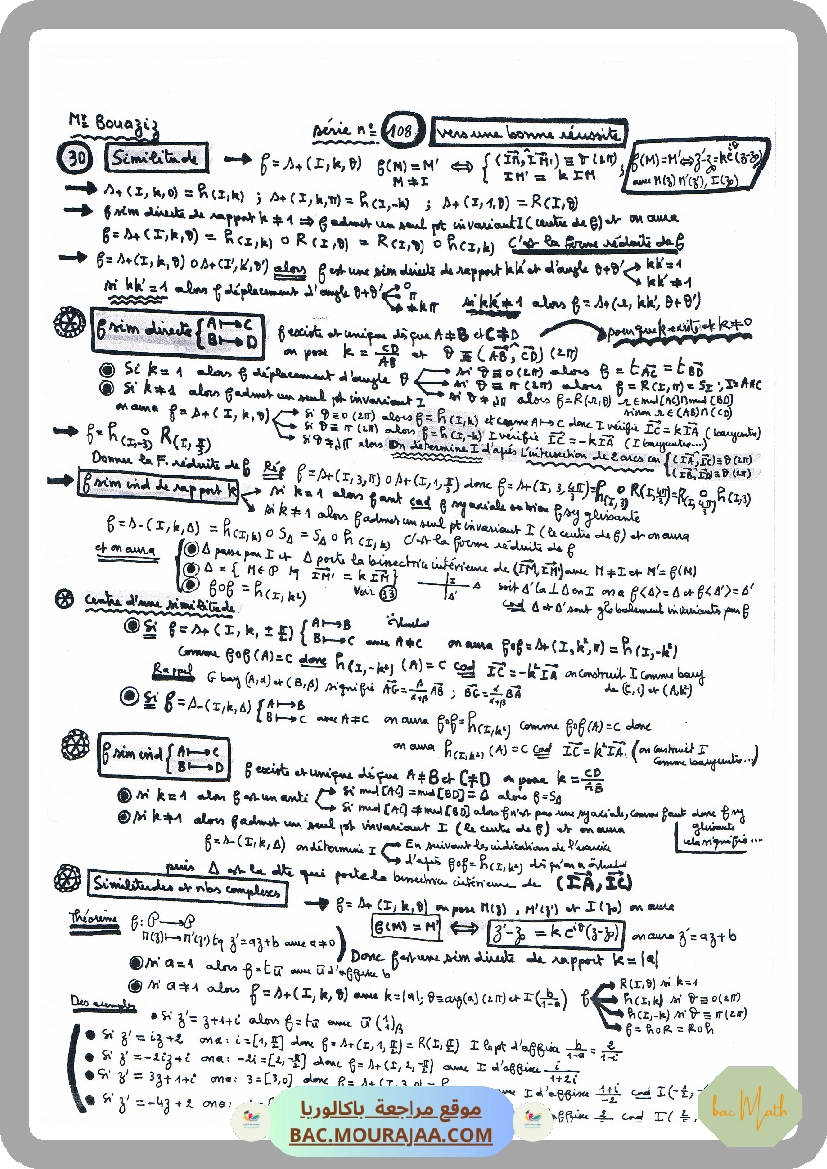 Mr Bouaziz
série n° 108 vers une bonne réussite
30 Similitude → f = s+(I, k, θ) f(M) = M' M ≠ I ⟺ { (IM, IM') ≡ θ (2π) ; IM' = k IM ; f(M) = M' ⟺ z'-z₀ = k e^iθ (z-z₀) avec M(z) M'(z'), I(z₀)
→ s+(I, k, 0) = h(I, k) ; s+(I, k, π) = h(I, -k) ; s+(I, 1, θ) = R(I, θ)
→ f sim directe de rapport k ≠ 1 ⟹ f admet un seul pt invariant I (centre de f) et on aura
f = s+(I, k, θ) = h(I, k) o R(I, θ) = R(I, θ) o h(I, k) C'est la forme réduite de f
→ f = s+(I, k, θ) o s+(I', k', θ') alors f est une sim directe de rapport kk' et d'angle θ+θ' kk' = 1 kk' ≠ 1
si kk' = 1 alors f déplacement d'angle θ+θ' 0 π ≠ kπ si kk' ≠ 1 alors f = s+(Ω, kk', θ+θ')
f sim directe { A ↦ C B ↦ D f existe et unique dès que A ≠ B et C ≠ D pour que k existe et k ≠ 0
on pose k = CD/AB et θ ≡ (AB, CD) (2π)
Si k = 1 alors f déplacement d'angle θ si θ ≡ 0 (2π) alors f = t AC = t BD
si θ ≡ π (2π) alors f = R(I, π) = S_I ; I = A*C
Si k ≠ 1 alors f admet un seul pt invariant I
on aura f = s+(I, k, θ) si θ ≡ 0 (2π) alors f = h(I, k) et comme A ↦ C donc I vérifie IC = k IA (barycentre)
si θ ≡ π (2π) alors f = h(I, -k) I vérifie IC = -k IA (I barycentre...)
On détermine I d'après l'intersection de 2 arcs car { (IA, IC) ≡ θ (2π) (IB, ID) ≡ θ (2π)
→ f = h(I, -3) o R(I, π/3)
Donner la F. réduite de f Rép f = s+(I, 3, π) o s+(I, 1, π/3) donc f = s+(I, 3, 4π/3) = h(I, 3) o R(I, 4π/3) = R(I, 4π/3) o h(I, 3)
→ f sim ind de rapport k si k = 1 alors f ant cad f sy axiale ou bien f sy glissante
si k ≠ 1 alors f admet un seul pt invariant I (le centre de f) et on aura
f = s-(I, k, Δ) = h(I, k) o S_Δ = S_Δ o h(I, k) c'est la forme réduite de f
et on aura Δ passe par I et Δ porte la bissectrice intérieure de (IM, IM') avec M ≠ I et M' = f(M)
Δ = { M ∈ P tq IM' = k IM }
fof = h(I, k²) Voir 33 soit Δ' la ⊥ Δ en I on a f<Δ> = Δ et f<Δ'> = Δ'
cad Δ et Δ' sont globalement invariants par f
Centre d'une similitude
Si f = s+(I, k, ± π/2) { A ↦ B B ↦ C avec A ≠ C on aura fof = s+(I, k², π) = h(I, -k²)
Comme fof(A) = C donc h(I, -k²)(A) = C cad IC = -k² IA on construit I comme bary
Rappel G bary (A, α) et (B, β) signifie AG = β/α+β AB ; BG = α/α+β BA de (C, 1) et (A, k²)
Si f = s-(I, k, Δ) { A ↦ B B ↦ C avec A ≠ C on aura fof = h(I, k²) comme fof(A) = C donc
on aura h(I, k²)(A) = C cad IC = k² IA. (on construit I comme barycentre...)
f sim ind { A ↦ C B ↦ D f existe et unique dès que A ≠ B et C ≠ D on pose k = CD/AB
si k = 1 alors f est un anti Si med [AC] = med [BD] = Δ alors f = S_Δ
Si med [AC] ≠ med [BD] alors f n'est pas une sy axiale, comme f ant donc f sy glissante
cela signifie ...
si k ≠ 1 alors f admet un seul pt invariant I (le centre de f) et on aura
f = s-(I, k, Δ) on détermine I En suivant les indications de l'exercice
d'après fof = h(I, k²) dès qu'on a
puis Δ est la dte qui porte la bissectrice intérieure de (IA, IC)
Similitudes et nbs complexes → f = s+(I, k, θ) on pose M(z), M'(z') et I(z₀) on aura
Théorème f : P → P f(M) = M' ⟺ z'-z₀ = k e^iθ (z-z₀) on aura z' = az + b
M(z) ↦ M'(z') tq z' = az + b avec a ≠ 0 ) Donc f est une sim directe de rapport k = |a|
si a = 1 alors f = t u avec u d'affixe b
si a ≠ 1 alors f = s+(I, k, θ) avec k = |a| ; θ = arg(a) (2π) et I(b/1-a) f R(I, θ) si k = 1
h(I, k) si θ ≡ 0 (2π)
h(I, -k) si θ ≡ π (2π)
f = h o R = R o h
Des exemples
Si z' = z + 1 + i alors f = t u avec u (1 1)
Si z' = iz + 2 on a : i = [1, π/2] donc f = s+(I, 1, π/2) = R(I, π/2) I le pt d'affixe b/1-a = 2/1-i
Si z' = -2iz + i on a : -2i = [2, -π/2] donc f = s+(I, 2, -π/2) avec I d'affixe i/1+2i
Si z' = 3z + 1 + i on a : 3 = [3, 0] donc I d'affixe 1+i/-2 cad
Si z' = -4z + 2 on a :
موقع مراجعة باكالوريا
BAC.MOURAJAA.COM
bac Math